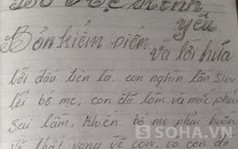 Bố Mẹ kính
yêu
Bản kiểm điểm
và lời hứa
lời đầu tiên là con nghìn lần xin
lỗi bố mẹ, con đã làm và mắc phải
sai lầm, khiến bố mẹ phải buồn
và thất vọng về con, co con đã
SOHA.VN